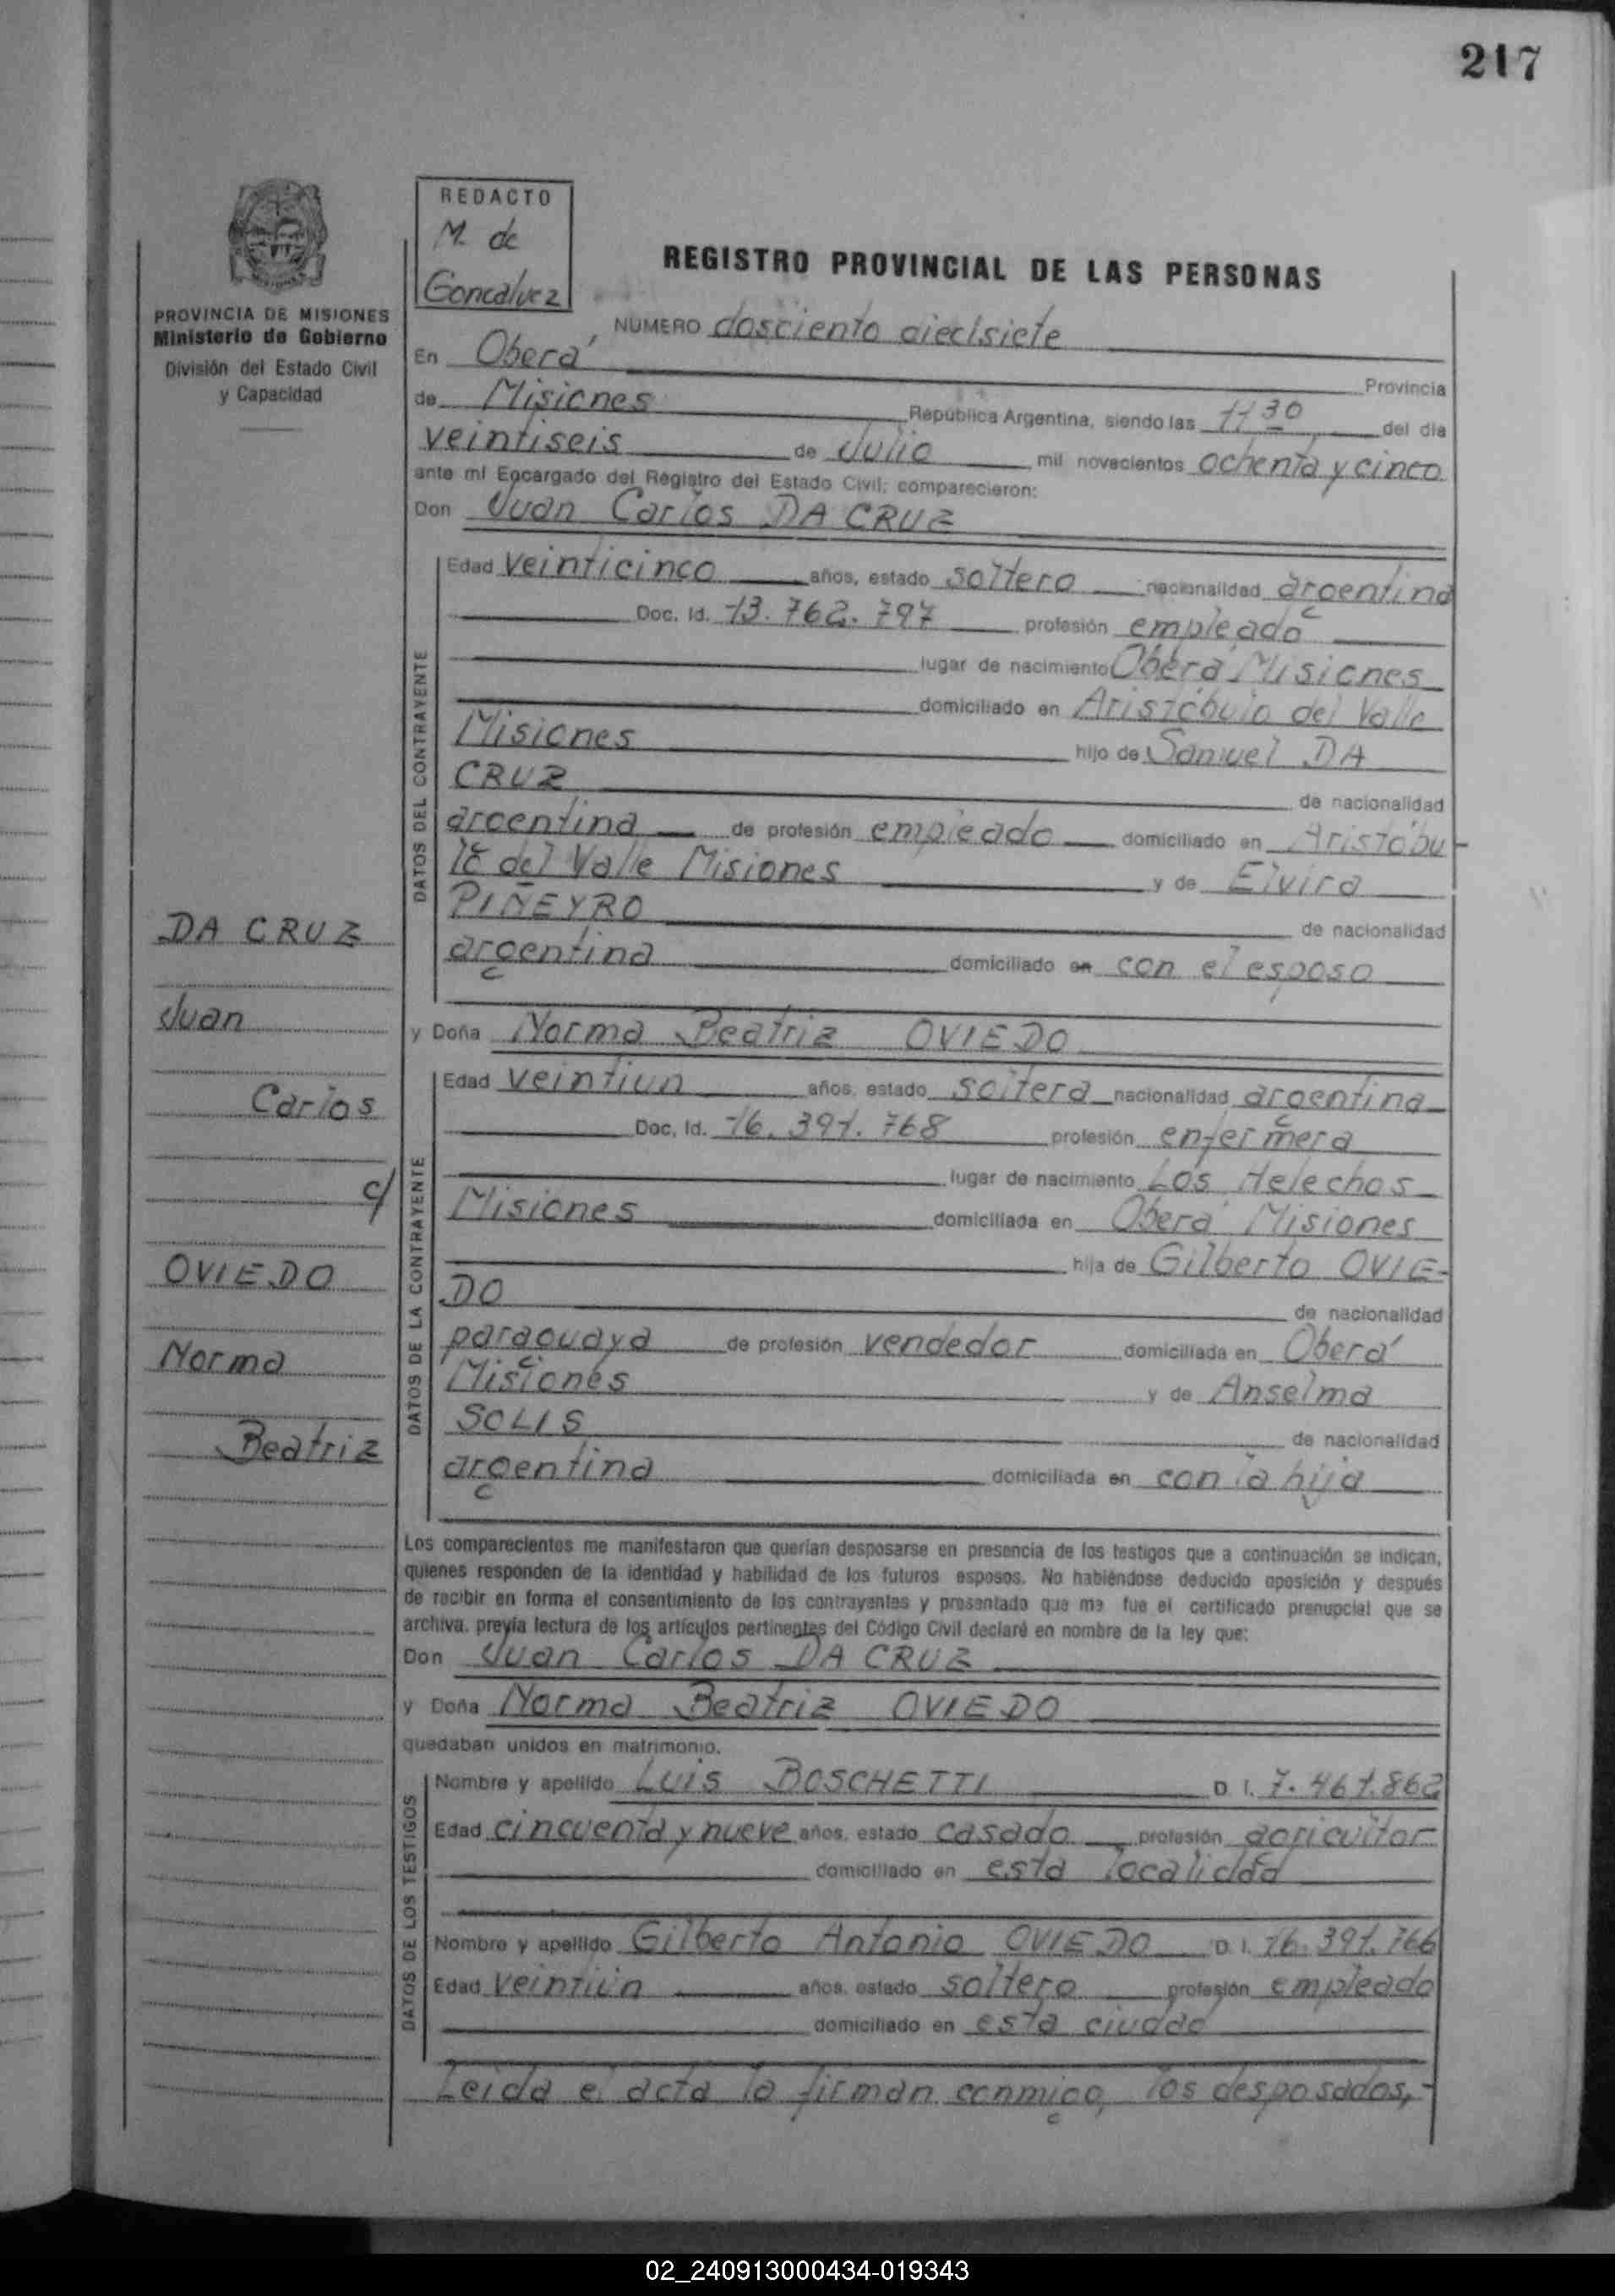 217
REDACTO
M. de
Goncalvez
REGISTRO PROVINCIAL DE LAS PERSONAS
PROVINCIA DE MISIONES
Ministerio de Gobierno
División del Estado Civil
y Capacidad
NUMERO dosciento diecisiete
En Oberá Provincia
de Misiones República Argentina, siendo las 11 30 del día
veintiseis de Julio mil novecientos ochenta y cinco
ante mi Encargado del Registro del Estado Civil; comparecieron:
Don Juan Carlos DA CRUZ
DATOS DEL CONTRAYENTE
Edad veinticinco años, estado soltero nacionalidad argentina
Doc. Id. 13.762.797 profesión empleado
lugar de nacimiento Oberá Misiones
domiciliado en Aristóbulo del Valle
Misiones hijo de Samuel DA
CRUZ de nacionalidad
argentina de profesión empleado domiciliado en Aristóbu-
lo del Valle Misiones y de Elvira
PIÑEYRO de nacionalidad
argentina domiciliado en con el esposo
y Doña Norma Beatriz OVIEDO
DATOS DE LA CONTRAYENTE
Edad veintiun años, estado soltera nacionalidad argentina
Doc. Id. 16.391.768 profesión enfermera
lugar de nacimiento Los Helechos
Misiones domiciliada en Oberá Misiones
hija de Gilberto OVIE-
DO de nacionalidad
paraguaya de profesión vendedor domiciliada en Oberá
Misiones y de Anselma
SOLIS de nacionalidad
argentina domiciliada en con la hija
DA CRUZ
Juan
Carlos
c/
OVIEDO
Norma
Beatriz
Los comparecientes me manifestaron que querían desposarse en presencia de los testigos que a continuación se indican,
quienes responden de la identidad y habilidad de los futuros esposos. No habiéndose deducido oposición y después
de recibir en forma el consentimiento de los contrayentes y presentado que me fue el certificado prenupcial que se
archiva, previa lectura de los artículos pertinentes del Código Civil declaré en nombre de la ley que:
Don Juan Carlos DA CRUZ
y Doña Norma Beatriz OVIEDO
quedaban unidos en matrimonio.
DATOS DE LOS TESTIGOS
Nombre y apellido Luis BOSCHETTI D. I. 7.461.862
Edad cincuenta y nueve años, estado casado profesión agricultor
domiciliado en esta localidad
Nombre y apellido Gilberto Antonio OVIEDO D. I. 16.391.766
Edad veintiún años, estado soltero profesión empleado
domiciliado en esta ciudad
Leida el acta la firman conmigo, los desposados,-
02_240913000434-019343